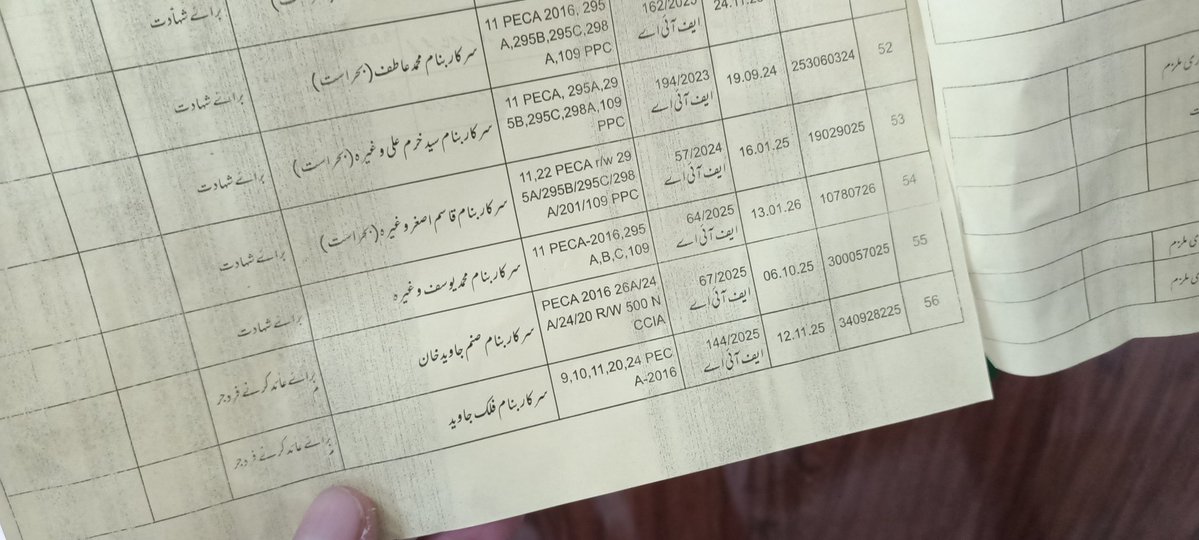 برائے شہادت
11 PECA 2016, 295
A,295B,295C,298
A,109 PPC
ایف آئی اے
سرکار بنام محمد عاطف (بحراست)
برائے شہادت
52
253060324
19.09.24
194/2023
ایف آئی اے
11 PECA, 295A,29
5B,295C,298A,109
PPC
سرکار بنام سید خرم علی وغیرہ (بحراست)
برائے شہادت
53
19029025
16.01.25
57/2024
ایف آئی اے
11,22 PECA r/w 29
5A/295B/295C/298
A/201/109 PPC
سرکار بنام قاسم اصغر وغیرہ (بحراست)
برائے شہادت
54
10780726
13.01.26
64/2025
ایف آئی اے
11 PECA-2016,295
A,B,C,109
سرکار بنام محمد یوسف وغیرہ
برائے شہادت
55
300057025
06.10.25
67/2025
ایف آئی اے
PECA 2016 26A/24
A/24/20 R/W 500 N
CCIA
سرکار بنام صنم جاوید خان
برائے عائد کرنے فرد جر
م
56
340928225
12.11.25
144/2025
ایف آئی اے
9,10,11,20,24 PEC
A-2016
سرکار بنام فلک جاوید
برائے عائد کرنے فرد جر
م